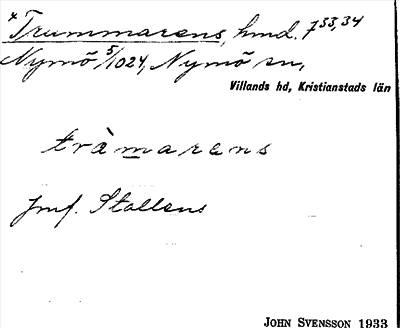 4 Trummarens, hmd. 733,34
Nymö 5/1024, Nymö sn,
Villands hd, Kristianstads län
tràmarens
Jmf. Stallens
JOHN SVENSSON 1933